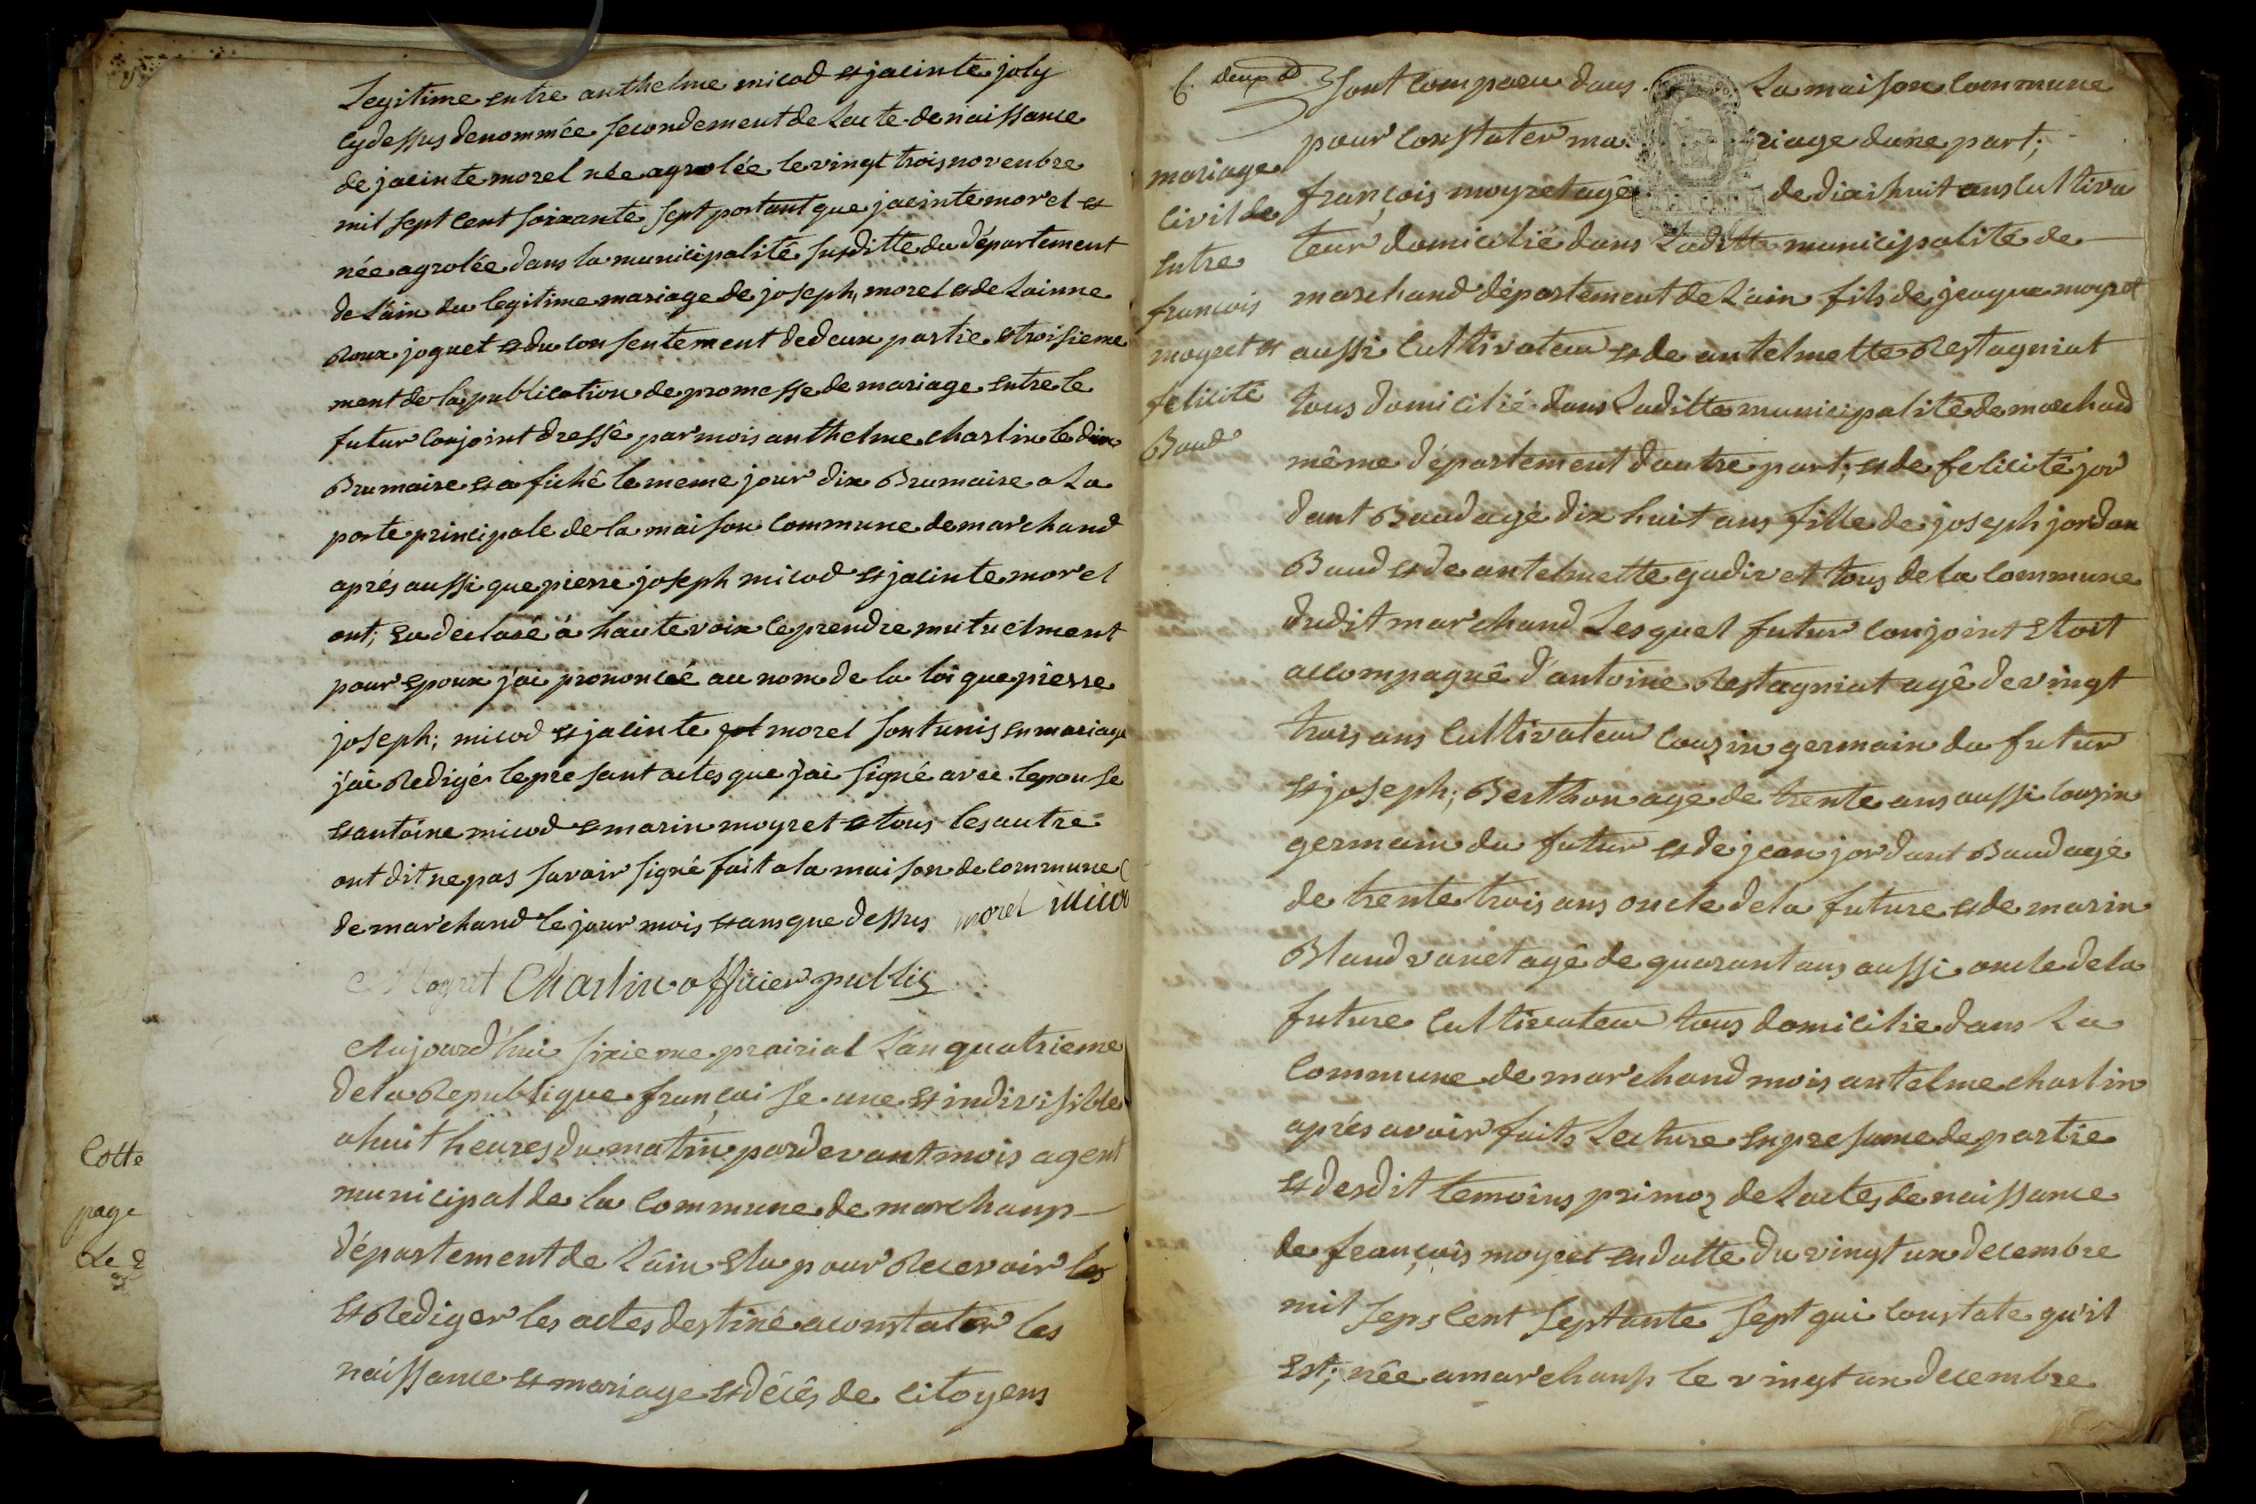 Legitime entre anthelme micod et jacinte joly
cydessus denommée secondement de Lacte de naissance
de jacinte morel née agrolée le vingt trois novenbre
mil sept cent soixante sept portant que jacinte morel et
née agrolée dans la municipalité susditte du département
de L'ain du legitime mariage de joseph morel et de Lainne
Roux joguet et du consentement de deux partie et troisieme
ment de la publication de promesse de mariage entre le
futur conjoint dressé par mois anthelme charlin le dix
Brumaire et afiché le meme jour dix Brumaire a La
porte principale de la maison commune de marchand
aprés aussi que pierre joseph micod et jacinte morel
ont; eu declaré á haute voix ce prendre mutuelment
pour epoux j'ai prononcéé au nom de la loi que pierre
joseph; micod et jacinte morel sont unis en mariage
j'ai Redigé le presant actes que j'ai signé avec lepouse
et antoine micod et marin moyret et tous les autre
ont dit ne pas savoir signé fait a la maison de commune
de marchand le jour mois et ans que dessus morel micod
Moyret Charlin officier public
Aujourd'hui sixieme prairial L'an quatrieme
de la Republique francaise une et indivisible
a huit heures du matin pardevant mois agent
municipal de la commune de marchamp
département de L'ain elu pour Recevoir les
et Rediger les actes destiné a constater les
naissance et mariage et décés de citoyens
Cotte
page
Le 2
6. deux d
mariage
civil de
entre
francois
moyret et
felicité
Baud
sont comparu dans La maison commune
pour constater mariage dune part;
françois moyret agé de dixihuit ans cultiva
teur domicilié dans Laditte municipalité de
marchand département de L'ain fils de jeaque moyret
aussi cultivateur et de antelmette Restagniat
tous domicilié dans Laditte municipalité de marchand
même département dautre part; et de felicité jor
dant Baud agé dix huit ans fille de joseph jordan
Baud et de antelmette gudiret tous de la commune
dudit marchand Lesquel futur conjoint etoit
accompagné d'antoine Restagniat agé de vingt
trois ans cultivateur couzin germain du futur
et joseph; Berthon agé de trente ans aussi couzin
germain du futur et de jean jordant Baud agé
de trente trois ans oncle de la future et de marin
Blandvanet agé de quarant ans aussi oncle de la
future cultivateur tous domicilie dans La
commune de marchand mois antelme charlin
aprés avoir faits Lecture enpresance de partie
et desdit temoins primoz de Lactes de naissance
de françois moyret en datte du vingt un decembre
mil seps cent septante sept qui constate qu'il
est; née a marchamp le vingt un decembre